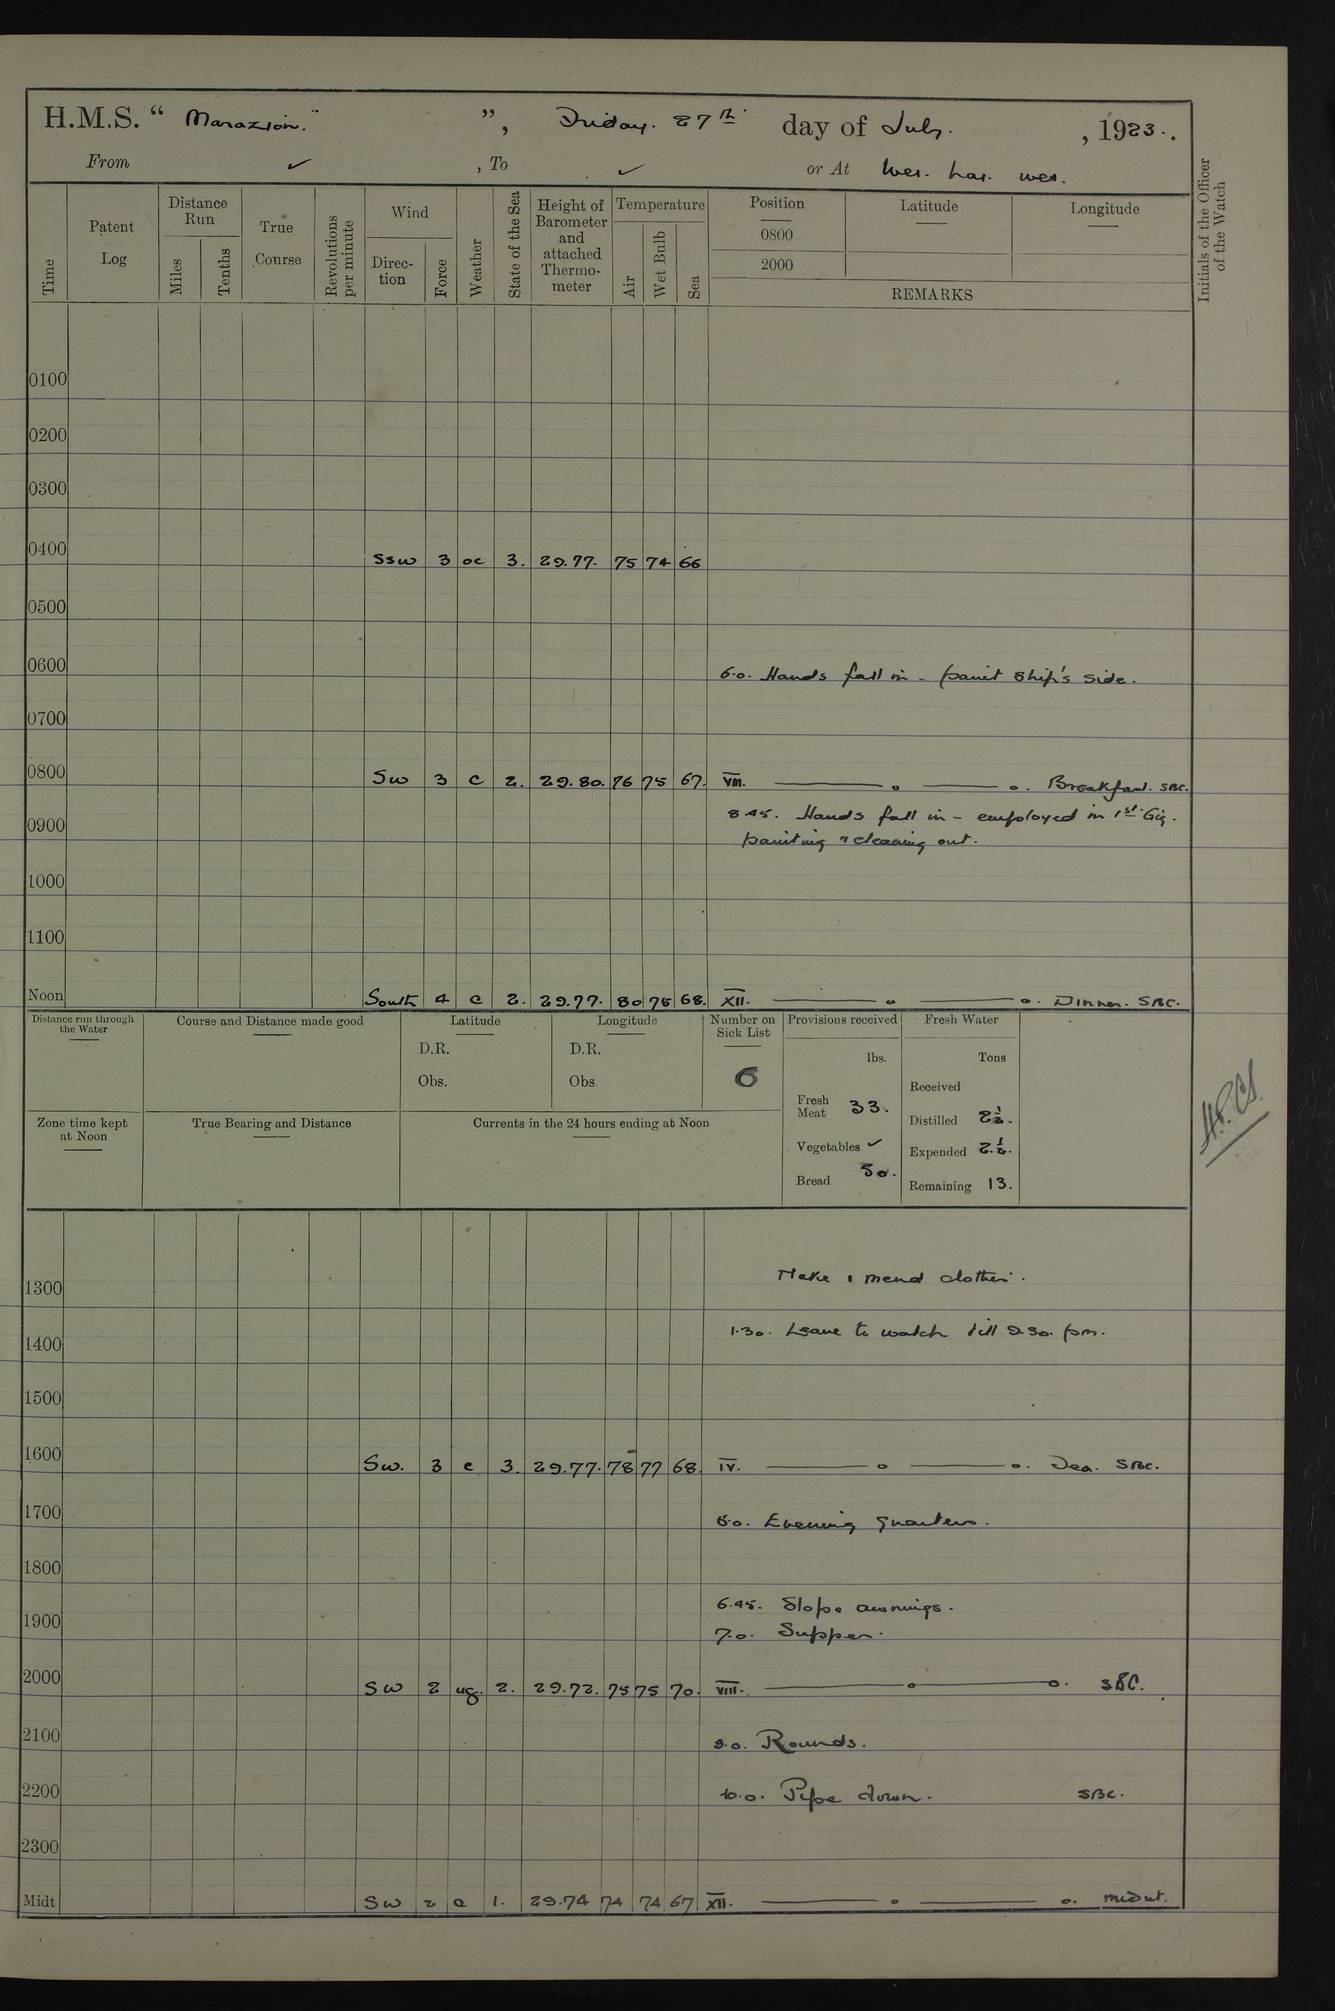 H.M.S. “ Marazion. ”, Friday. 27th day of July. , 1923.
From ✓ , To ✓ or At Wei. hai. wei.
Time
Patent Log
Distance Run
Miles
Tenths
True Course
Revolutions per minute
Wind
Direc-tion
Force
Weather
State of the Sea
Height of Barometer and attached Thermo-meter
Temperature
Air
Wet Bulb
Sea
Position
0800
2000
Latitude
Longitude
REMARKS
Initials of the Officer of the Watch
0100
0200
0300
0400 SSW 3 oc 3. 29.77. 75 74 66
0500
0600 6.0. Hands fall in - paint ship's side.
0700
0800 SW 3 c 2. 29.80. 76 75 67. VIII. Breakfast. SBC.
8.45. Hands fall in - employed in 1st Gig.
0900 painting & cleaning out.
1000
1100
Noon South 4 c 2. 29.77. 80 75 68. XII. Dinner. SBC.
Distance run through the Water
Course and Distance made good
Latitude
D.R.
Obs.
Longitude
D.R.
Obs.
Number on Sick List
6
Provisions received
lbs.
Fresh Meat 33.
Vegetables ✓
Bread 50.
Fresh Water
Tons
Received
Distilled 2½.
Expended 2.½.
Remaining 13.
Zone time kept at Noon
True Bearing and Distance
Currents in the 24 hours ending at Noon
Make & mend clothes.
1300
1.30. Leave to watch till 9.30. pm.
1400
1500
1600 SW. 3 c 3. 29.77. 78 77 68. IV. Tea. SBC.
1700 5.0. Evening quarters.
1800
6.45. Slope awnings.
1900 7.0. Supper.
2000 SW 2 ug. 2. 29.72. 75 75 70. VIII. SBC.
2100 9.0. Rounds.
2200 10.0. Pipe down. SBC.
2300
Midt SW 2 c 1. 29.74 74 74 67 XII. midnt.